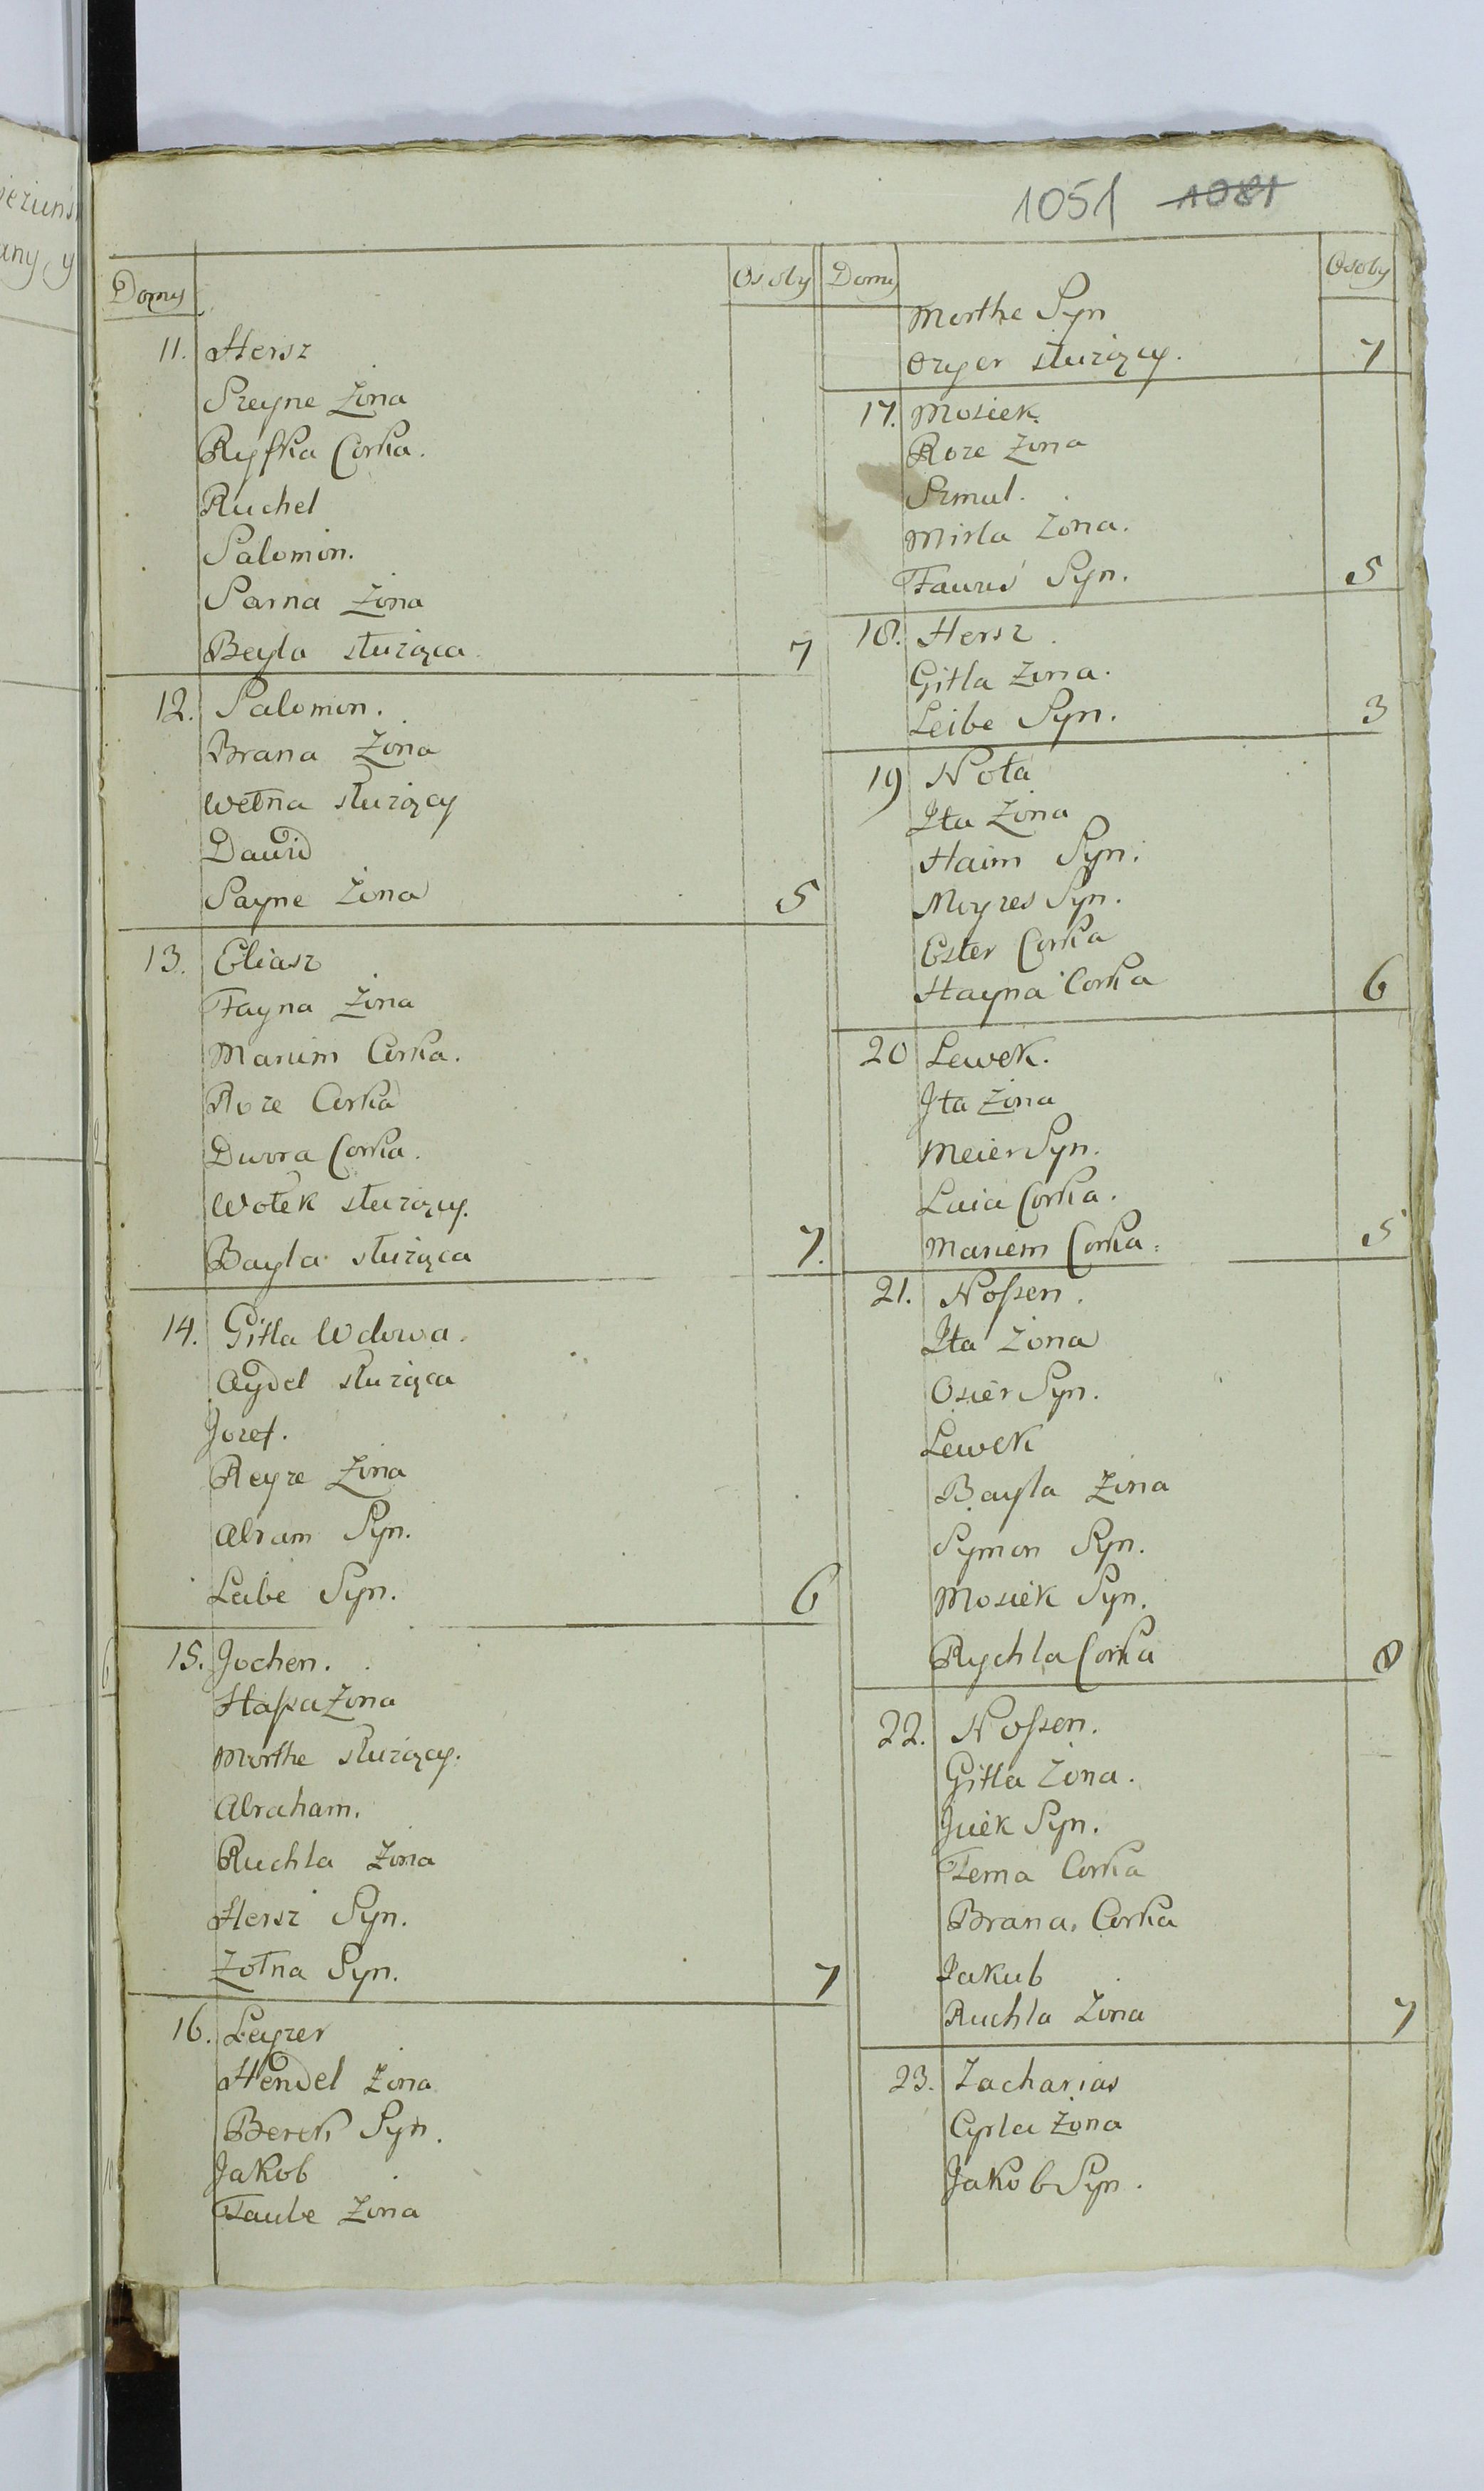 1051 1081
Domy Osoby
11. Hersz
Szeyne Żona
Ryfka Corka.
Ruchel
Salomon.
Sarna Żona
Beyla służąca 7
12. Salomon.
Brana Żona
Wełna służący
Dawid
Sayne Żona 5
13. Eliasz
Fayna Żona
Marium Corka.
Roze Corka
Dwora Corka.
Wołek służący.
Bayla służąca 7.
14. Gitla Wdowa.
Aydel służąca
Jozef.
Reyze Żona
Abram Syn.
Leibe Syn. 6
15. Jochen.
Haſsa Żona
Morthe służący.
Abraham.
Ruchla Żona
Hersz Syn.
Zołna Syn. 7
16. Leyzer
Hendel Żona
Berek Syn.
Jakob
Taube Żona
Domy Osoby
Morthe Syn
Oryer służący. 7
17. Mosiek.
Roze Żona
Szmul.
Mirla Żona.
Syn. 5
18. Hersz.
Gitla Żona.
Leibe Syn. 3
19 Nota
Ita Żona
Haim Syn.
Moyzes Syn.
Ester Corka
Hayna Corka 6
20 Lewek.
Jta Żona
Meier Syn.
Laia Corka.
Mariem Corka. 5
21. Noſsen.
Ita Żona
Osier Syn.
Lewek
Bayla Żona
Symon Syn.
Mosiek Syn.
Rychla Corka 8
22. Noſsen.
Gitla Żona.
Juek Syn.
Tema Corka
Brana, Corka
Jakub
Ruchla Żona 7
23. Zacharias
Cyrla Żona
Jakob Syn.